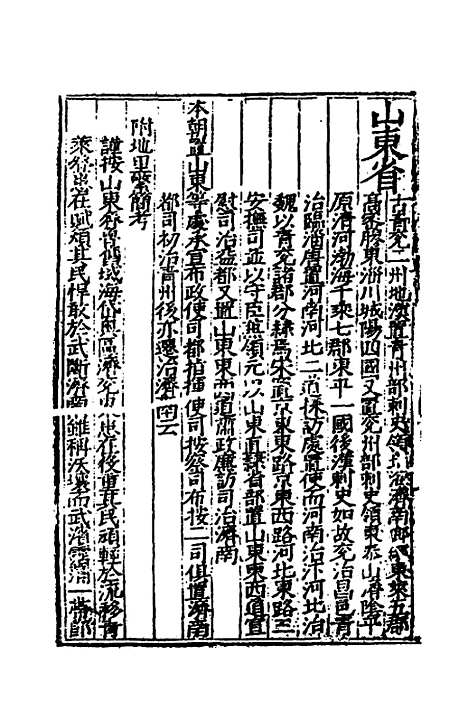 山東省
古青兗二州地漢置青州部刺史領北海濟南郡東萊五郡
高密膠東淄川城陽四國又置兗州部刺史領東泰山濟陰平
原清河渤海千乘七郡東平一國後漢刺史如故兗治昌邑青
治臨淄唐置河南河北二道採訪處置使而河南治汴河北治
魏以青兗諸郡分隸焉宋置京東東路京東西路河北東路三
安撫司並以守臣兼領元以山東直隸省部置山東東西道宣
慰司治益都又置山東東西道肅政廉訪司治濟南
本朝置山東等處承宣布政使司都指揮使司按察司布按二司俱置濟南
都司初治青州後亦遷治濟南云
附地里要簡考
謹按山東齊魯舊域海岱奧區濟兗患在徭重其民頑輕於流移青
萊登患在賦頑其民悍敢於武斷濟南雖稱沃樂而武濱霑一帶郎